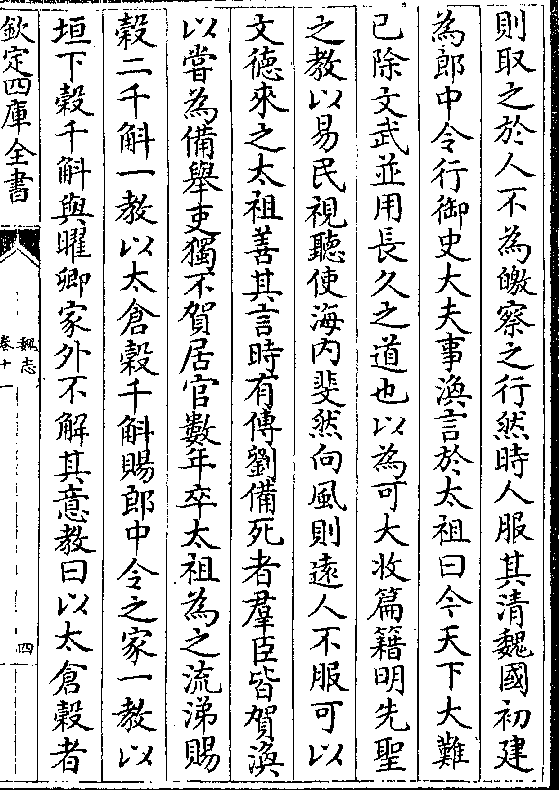 則取之於人不為皦察之行然時人服其清魏國初建
為郎中令行御史大夫事渙言於太祖曰今天下大難
已除文武並用長久之道也以為可大收篇籍明先聖
之教以易民視聽使海內斐然向風則遠人不服可以
文德來之太祖善其言時有傳劉備死者羣臣皆賀渙
以嘗為備舉吏獨不賀居官數年卒太祖為之流涕賜
榖二千斛一教以太倉榖千斛賜郎中令之家一教以
垣下榖千斛與曜卿家外不解其意教曰以太倉榖者
欽定四庫全書
魏志
卷十一
四